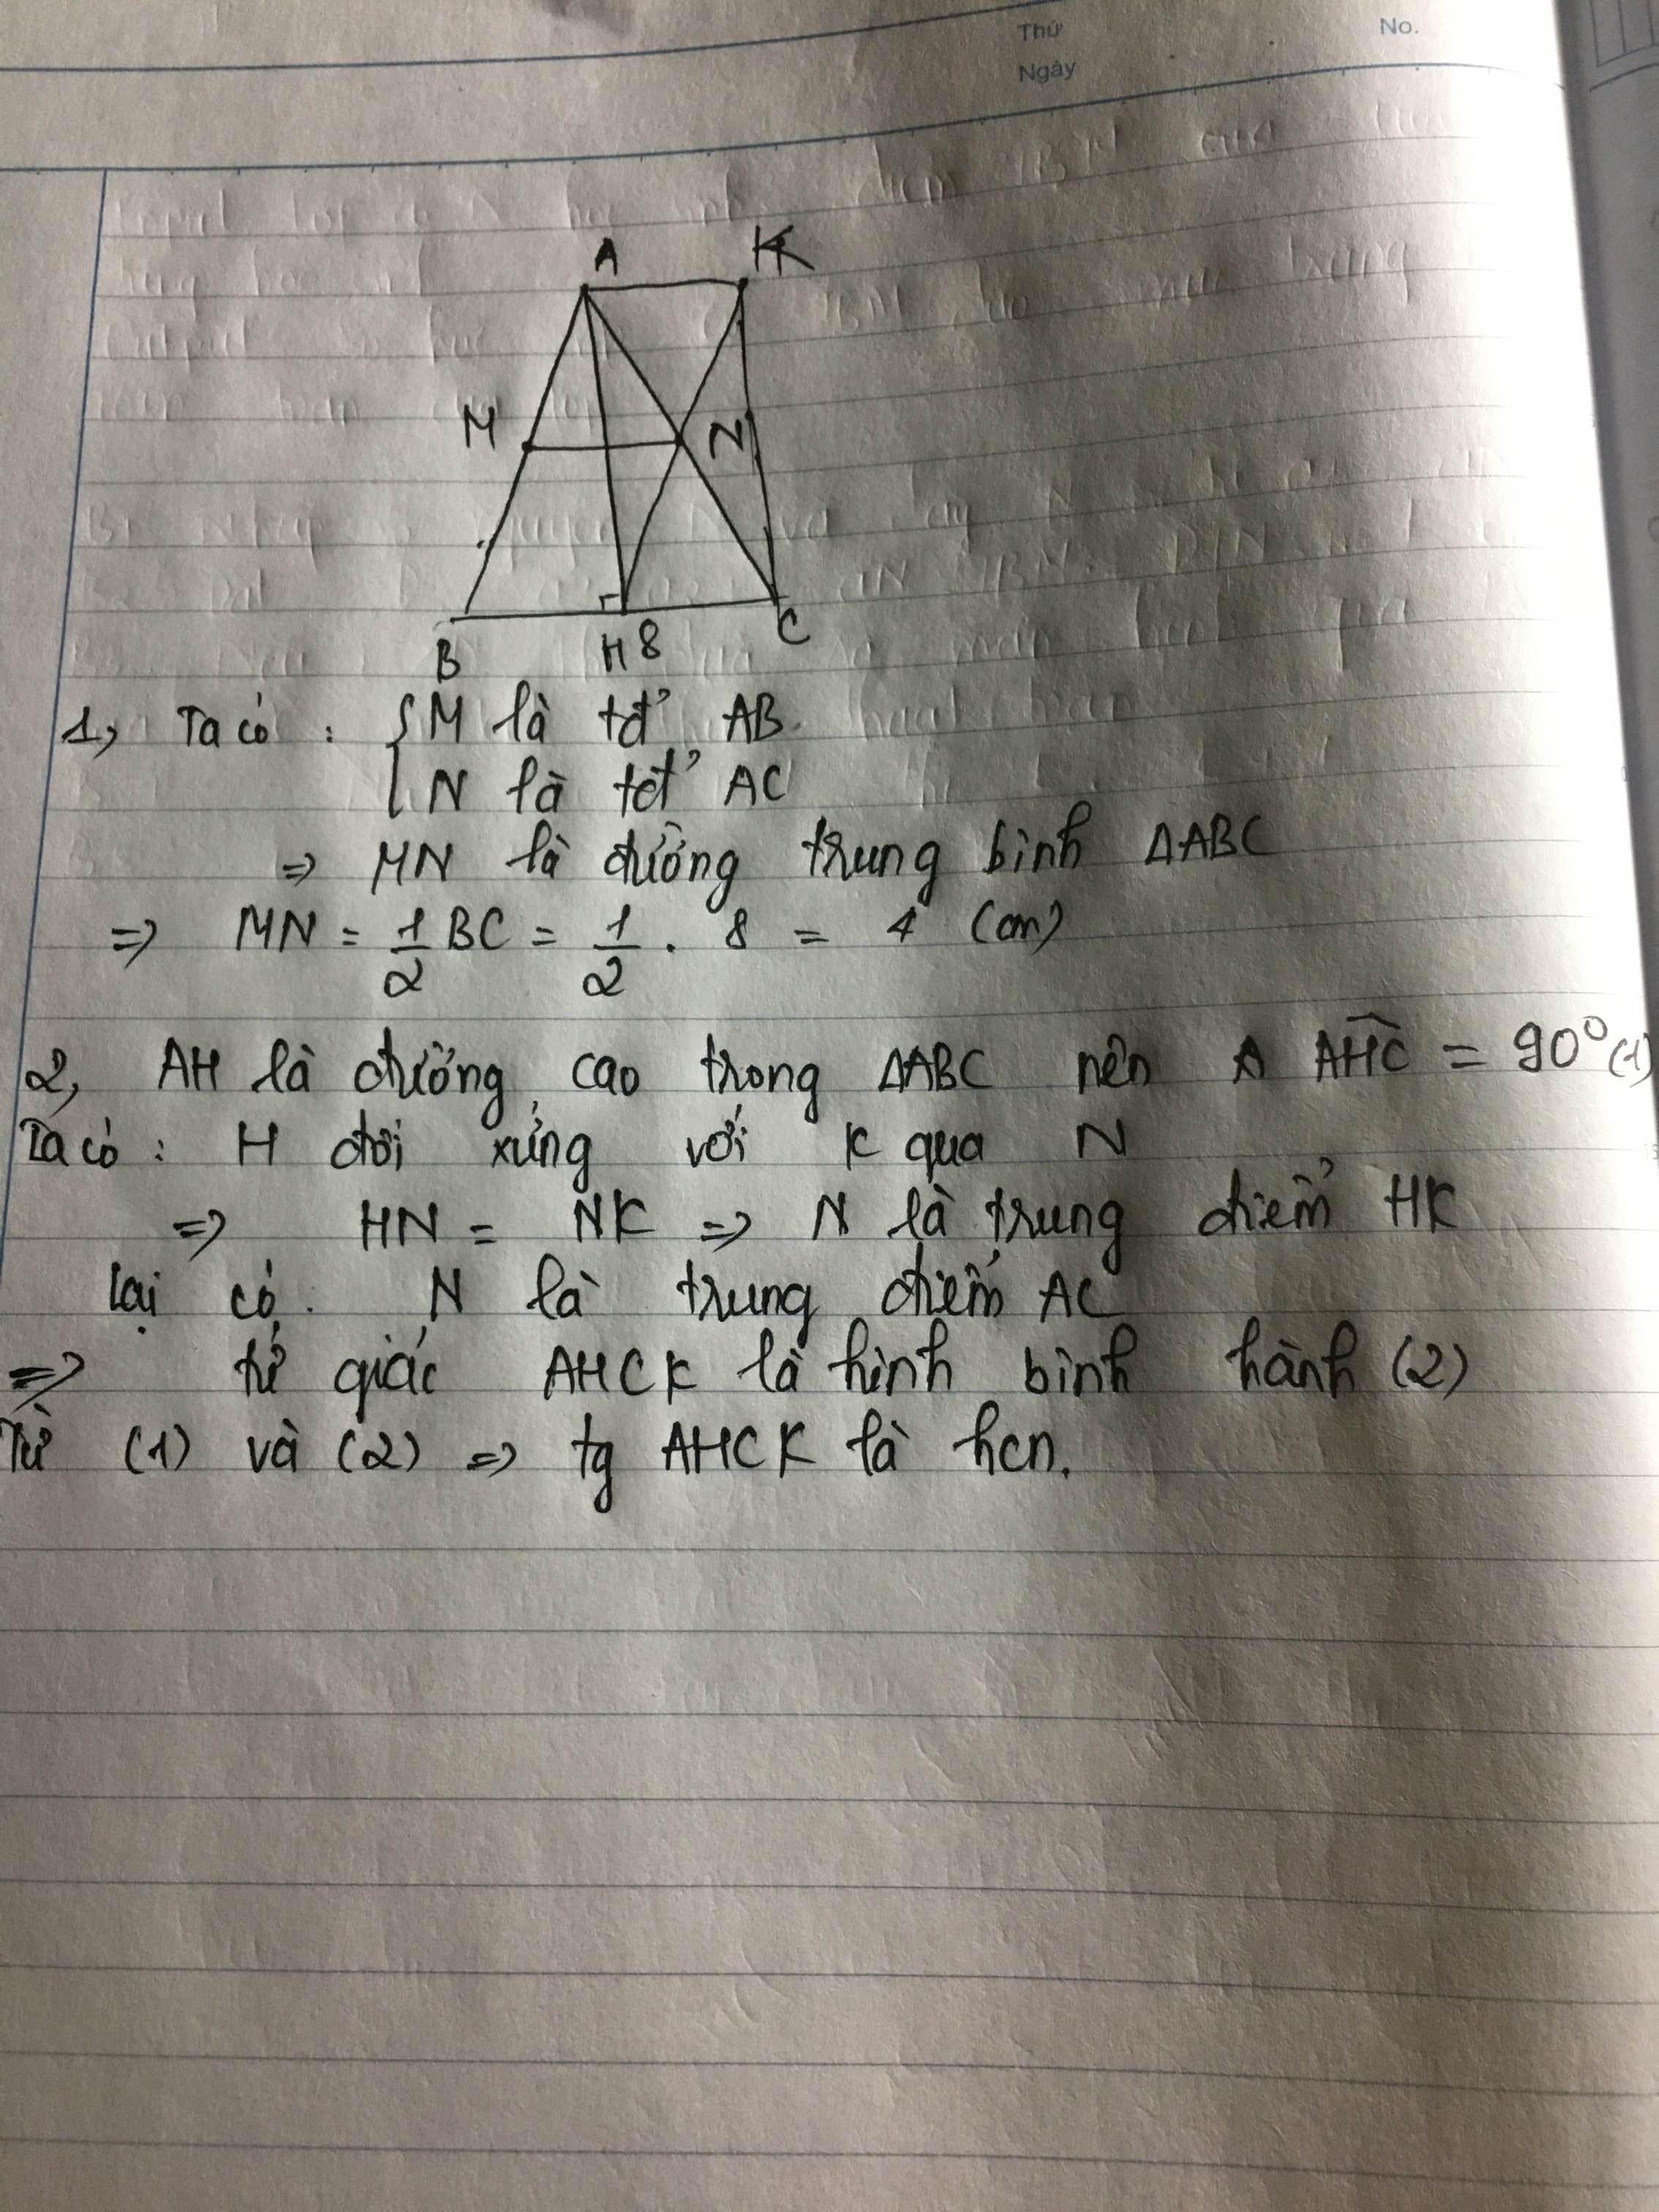 Thứ No.
Ngày
A K
M N
B H 8 C
1, Ta có : { M là tđ' AB
N là tđ' AC
=> MN là đường trung bình ΔABC
=> MN = 1/2 BC = 1/2 . 8 = 4 (cm)
2, AH là đường cao trong ΔABC nên A AHC = 90° (1)
Ta có : H đối xứng với K qua N
=> HN = NK => N là trung điểm HK
Lại có : N là trung điểm AC
=> tứ giác AHCK là hình bình hành (2)
Từ (1) và (2) => tg AHCK là hcn.